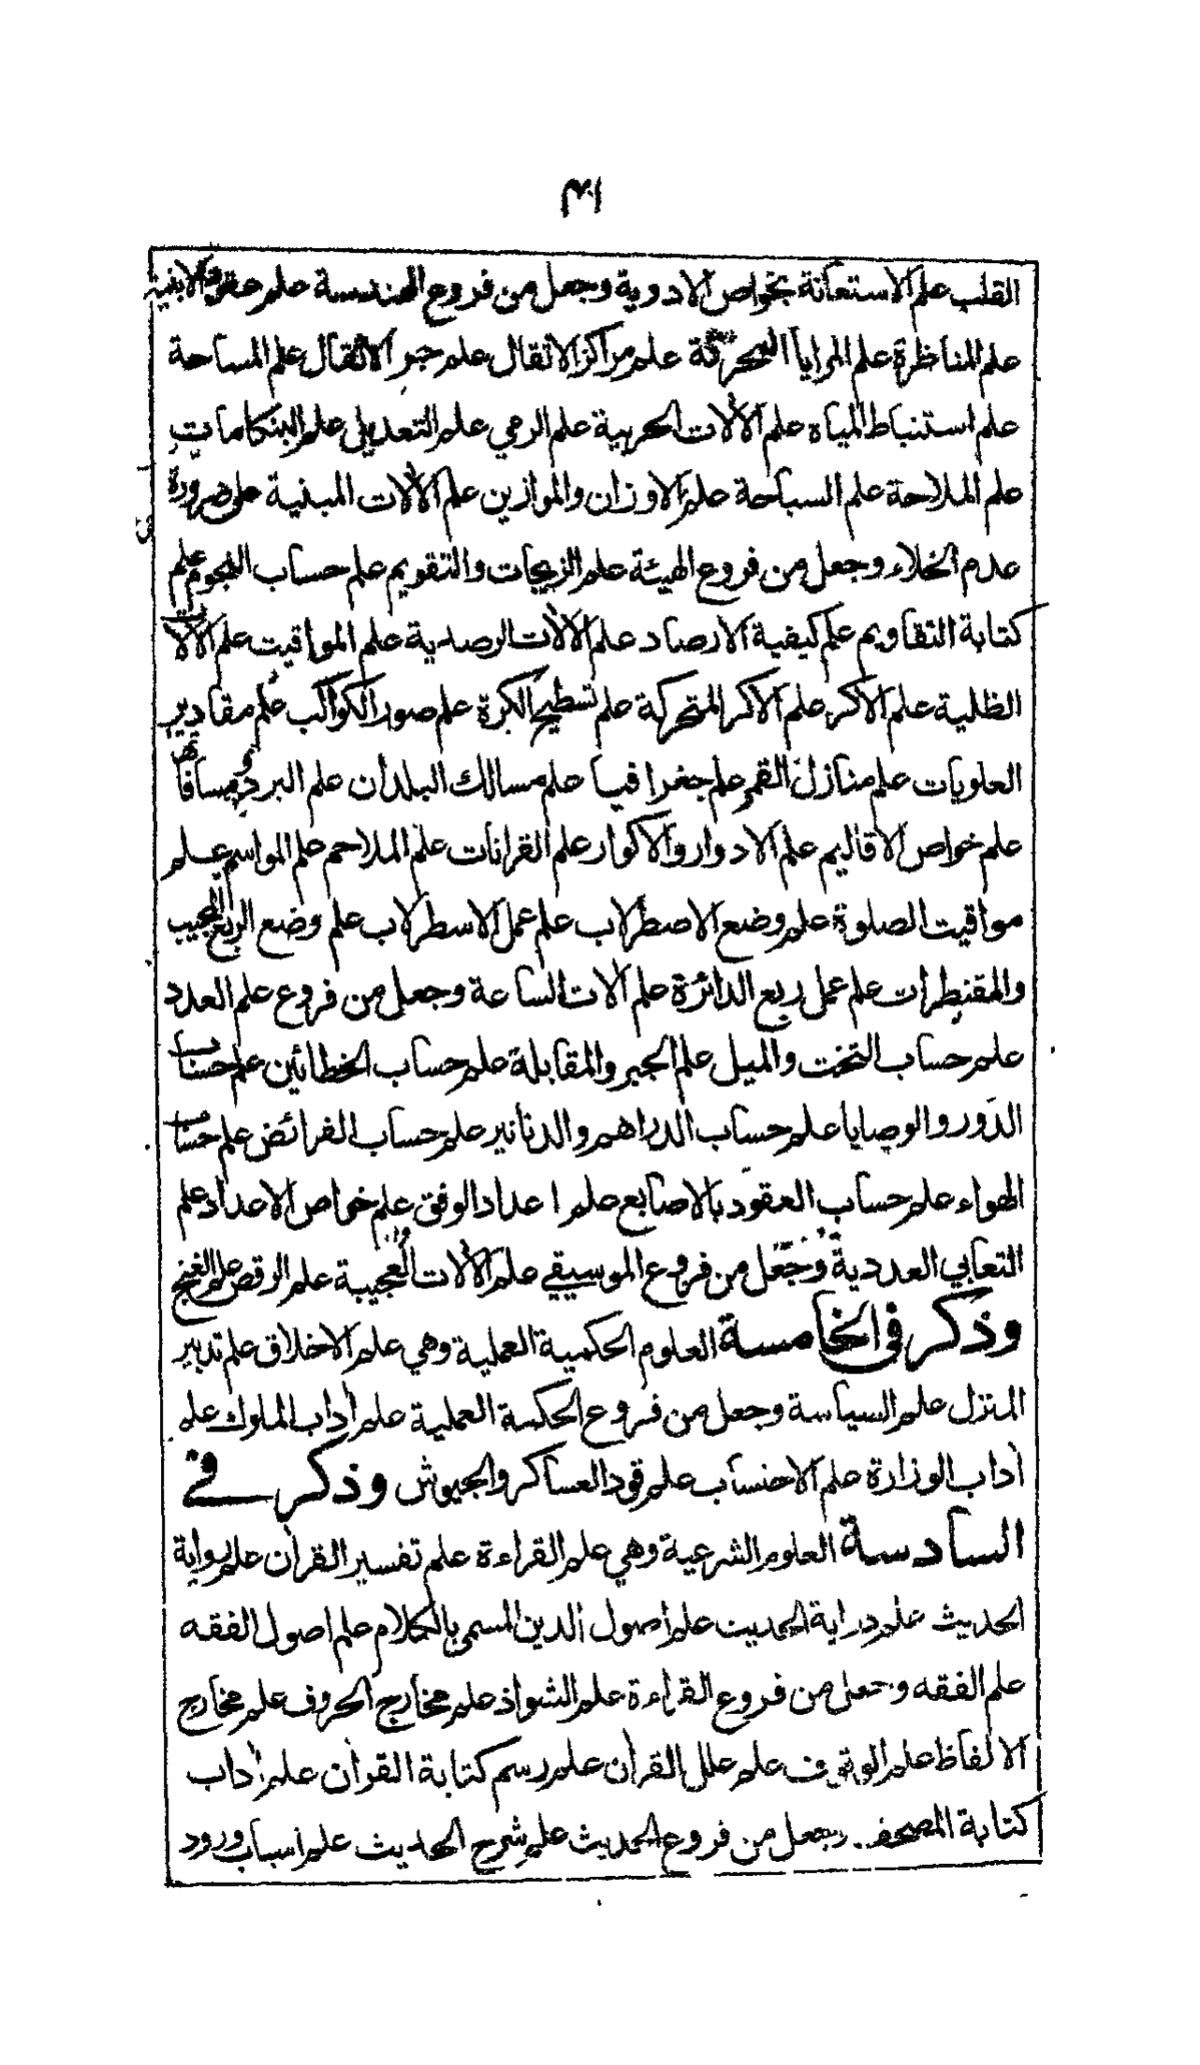 ٣١
القلب علم الاستعانة بخواص الادوية وجعل من فروع الهندسة علم عقود الابنية
علم المناظرة علم المرايا المحرقة علم مراكز الاثقال علم جر الاثقال علم المساحة
علم استنباط المياه علم الآلات الحربية علم الرمي علم التعديل علم البنكامات
علم الملاحة علم السباحة علم الاوزان والموازين علم الآلات المبنية على ضرورة
عدم الخلاء وجعل من فروع الهيئة علم الزيجات والتقويم علم حساب النجوم علم
كتابة التقاويم علم كيفية الارصاد علم الآلات الرصدية علم المواقيت علم الآلات
الظلية علم الاكر علم الاكر المتحركة علم تسطيح الكرة علم صور الكواكب علم مقادير
العلويات علم منازل القمر علم جغرافيا علم مسالك البلدان علم البرد ومسافاتها
علم خواص الاقاليم علم الادوار والاكوار علم القرانات علم الملاحم علم المواسم علم
مواقيت الصلوة علم وضع الاصطرلاب علم عمل الاسطرلاب علم وضع الربع المجيب
والمقنطرات علم عمل ربع الدائرة علم آلات الساعة وجعل من فروع علم العدد
علم حساب التخت والميل علم الجبر والمقابلة علم حساب الخطائين علم حساب
الدور والوصايا علم حساب الدراهم والدنانير علم حساب الفرائض علم حساب
الهواء علم حساب العقود بالاصابع علم اعداد الوفق علم خواص الاعداد علم
التعابي العددية وجعل من فروع الموسيقي علم الآلات العجيبة علم الرقص علم الغنج
وذكر في الخامسة العلوم الحكمية العملية وهي علم الاخلاق علم تدبير
المنزل علم السياسة وجعل من فروع الحكمة العملية علم آداب الملوك علم
آداب الوزارة علم الاحتساب علم قود العساكر والجيوش وذكر في
السادسة العلوم الشرعية وهي علم القراءة علم تفسير القرآن علم رواية
الحديث علم دراية الحديث علم اصول الدين المسمى بالكلام علم اصول الفقه
علم الفقه وجعل من فروع القراءة علم الشواذ علم مخارج الحروف علم مخارج
الالفاظ علم الوقوف علم علل القرآن علم رسم كتابة القرآن علم آداب
كتابة المصحف وجعل من فروع الحديث علم شرح الحديث علم اسباب ورود